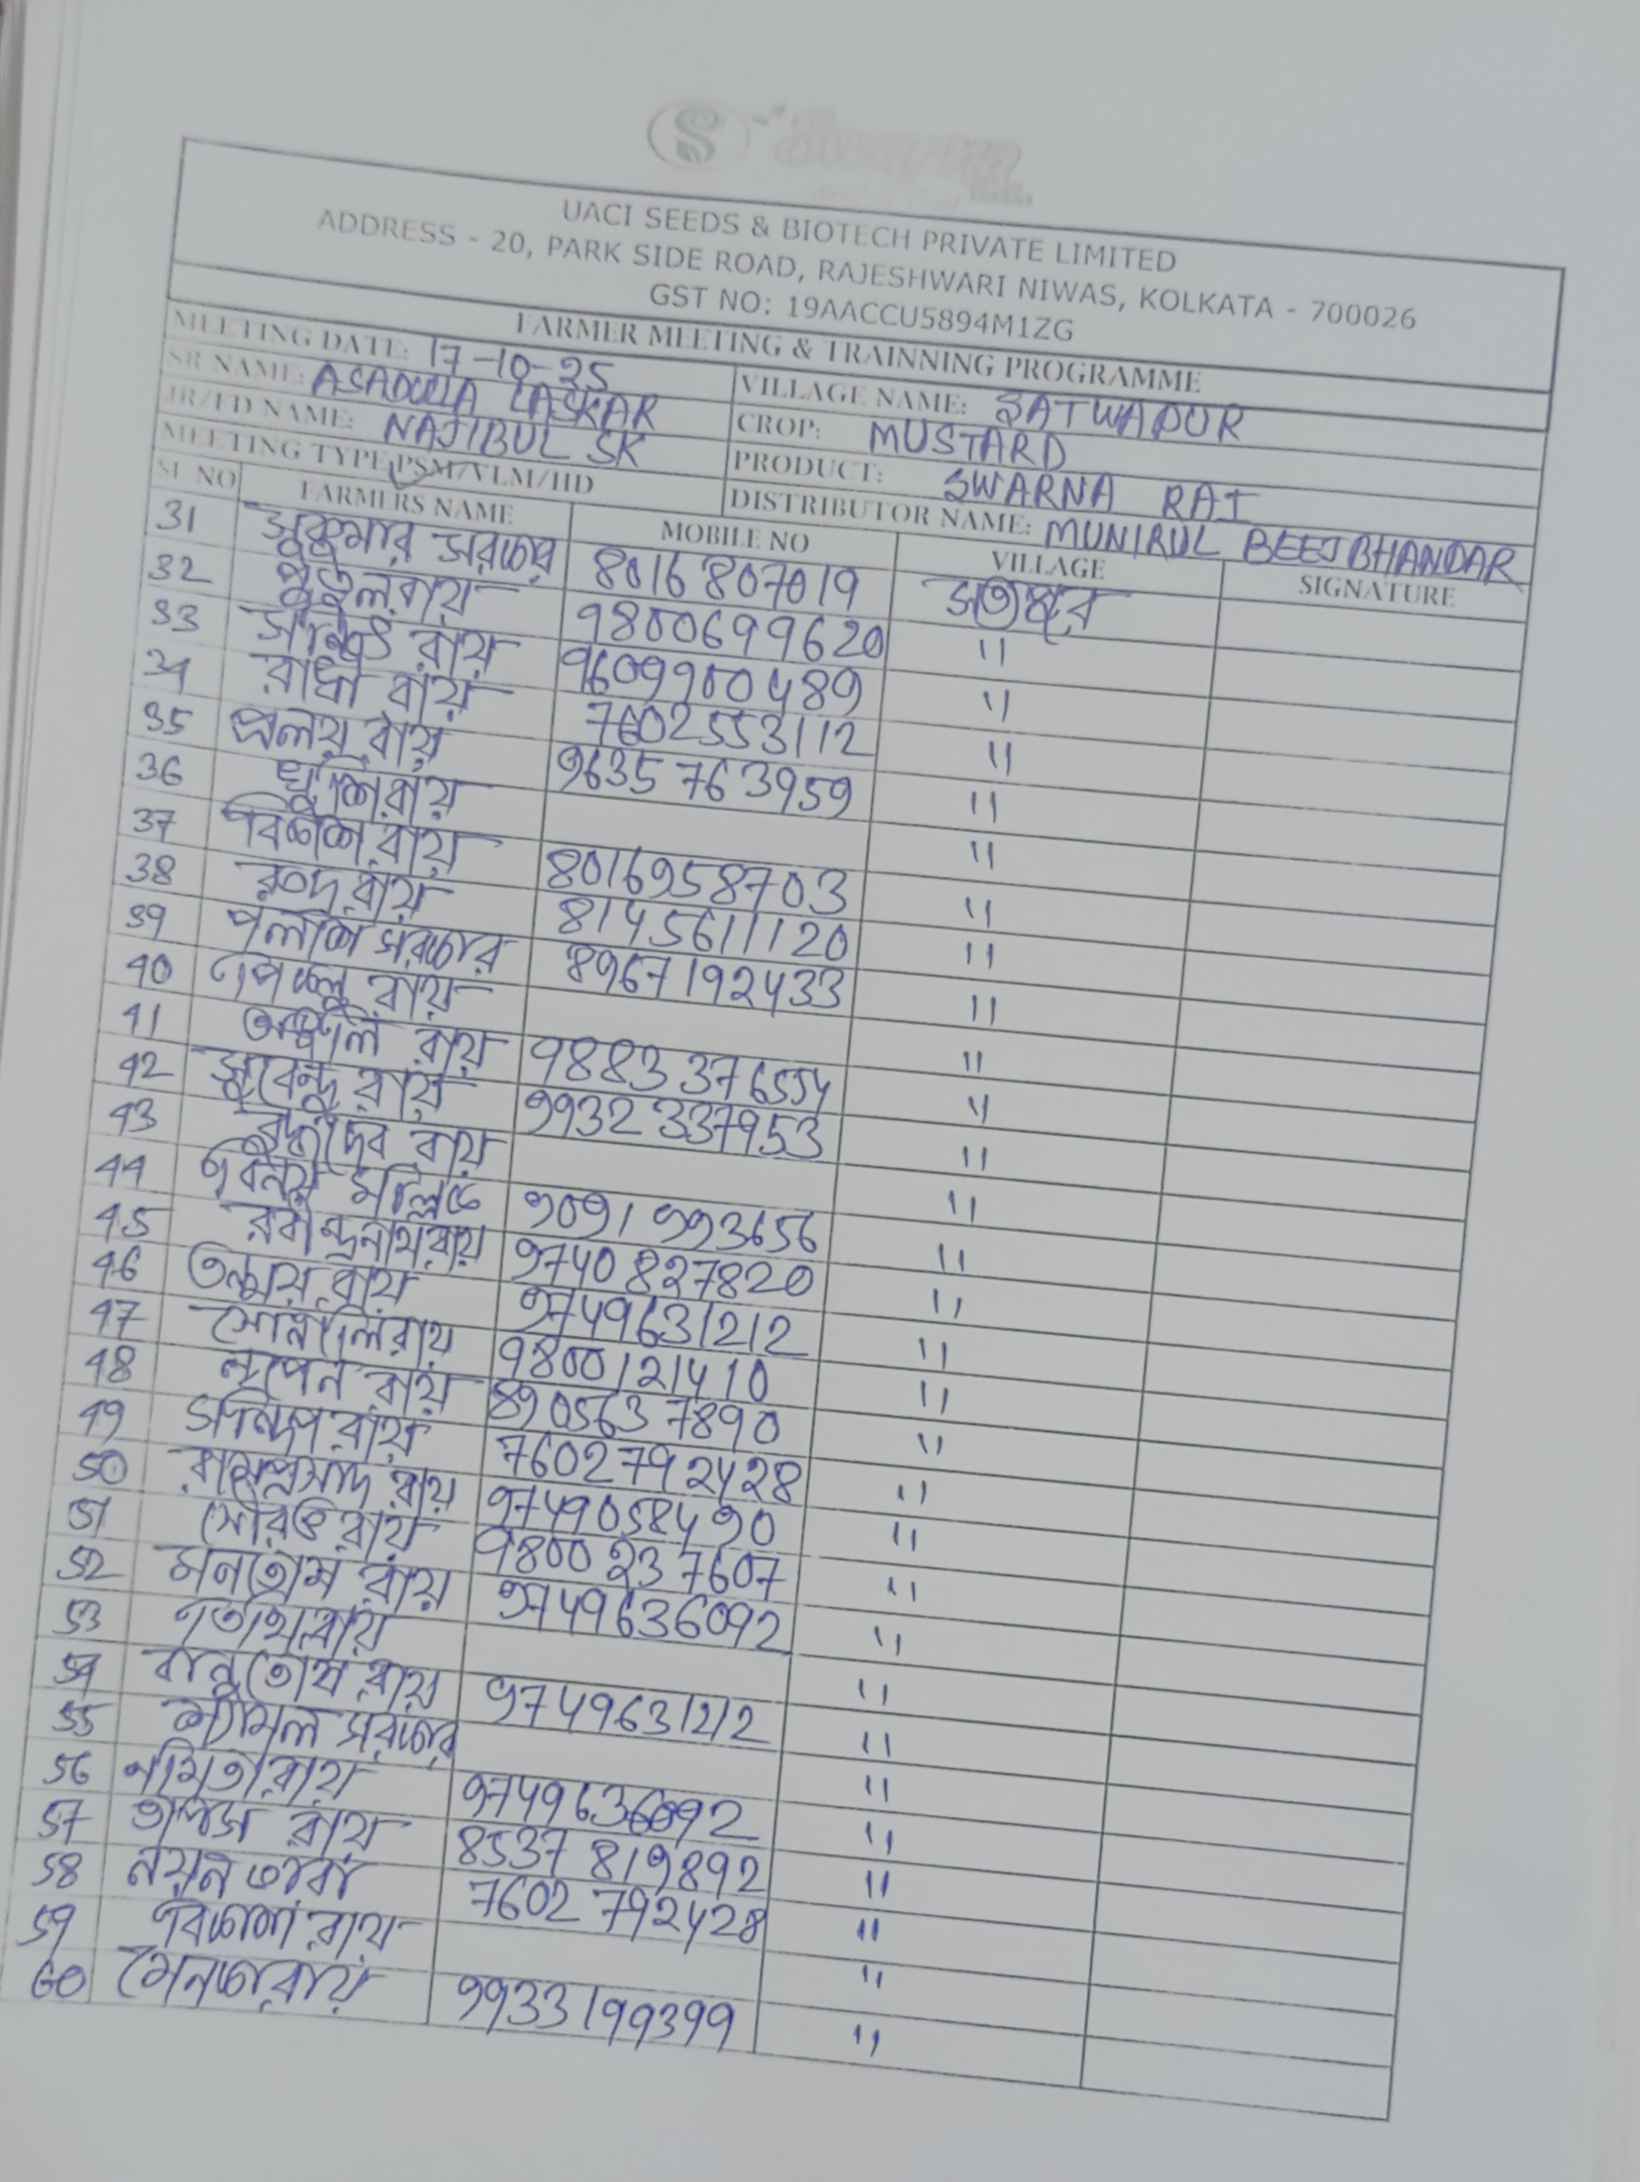 UACI SEEDS & BIOTECH PRIVATE LIMITED
ADDRESS - 20, PARK SIDE ROAD, RAJESHWARI NIWAS, KOLKATA - 700026
GST NO: 19AACCU5894M1ZG
FARMER MEETING & TRAINNING PROGRAMME
MEETING DATE: 17-10-25 VILLAGE NAME: SATWAPUR
SR NAME: ASADULLA LASKAR CROP: MUSTARD
JR/FD NAME: NAJIBUL SK PRODUCT: SWARNA RAI
MEETING TYPE PSM/VLM/HD DISTRIBUTOR NAME: MUNIRUL BEEJ BHANDAR
SL NO FARMERS NAME MOBILE NO VILLAGE SIGNATURE
31 সুকুমার সরকার 8016807019
32 পুতুল রায় 9800699620 "
33 রায় 9609900489 "
34 রাধা রায় 7602553112 "
35 প্রলয় রায় 9635763959 "
36 খুশি রায় "
37 বিকাশ রায় 8016958703 "
38 রায় 8145611120 "
39 পলাশ সরকার 8967192433 "
40 রায় "
41 রায় 9883376554 "
42 রায় 9932337953 "
43 বুদ্ধদেব রায় "
44 বিনয় মল্লিক 9091993656 "
45 রবীন্দ্রনাথ রায় 9740827820 "
46 তন্ময় রায় 9749631212 "
47 সোনালি রায় 9800121410 "
48 নৃপেন রায় 8905637890 "
49 সন্দিপ রায় 7602792428 "
50 রামপ্রসাদ রায় 9749058490 "
51 সৌরভ রায় 9800237607 "
52 মনতোষ রায় 9749636092 "
53 তিথি রায় "
54 রায় 9749631212 "
55 শ্যামল সরকার "
56 নমিতা রায় 9749636092 "
57 তাপস রায় 8537819892 "
58 নয়ন তারা 7602792428 "
59 বিকাশ রায় "
60 মেনকা রায় 9933199399 "